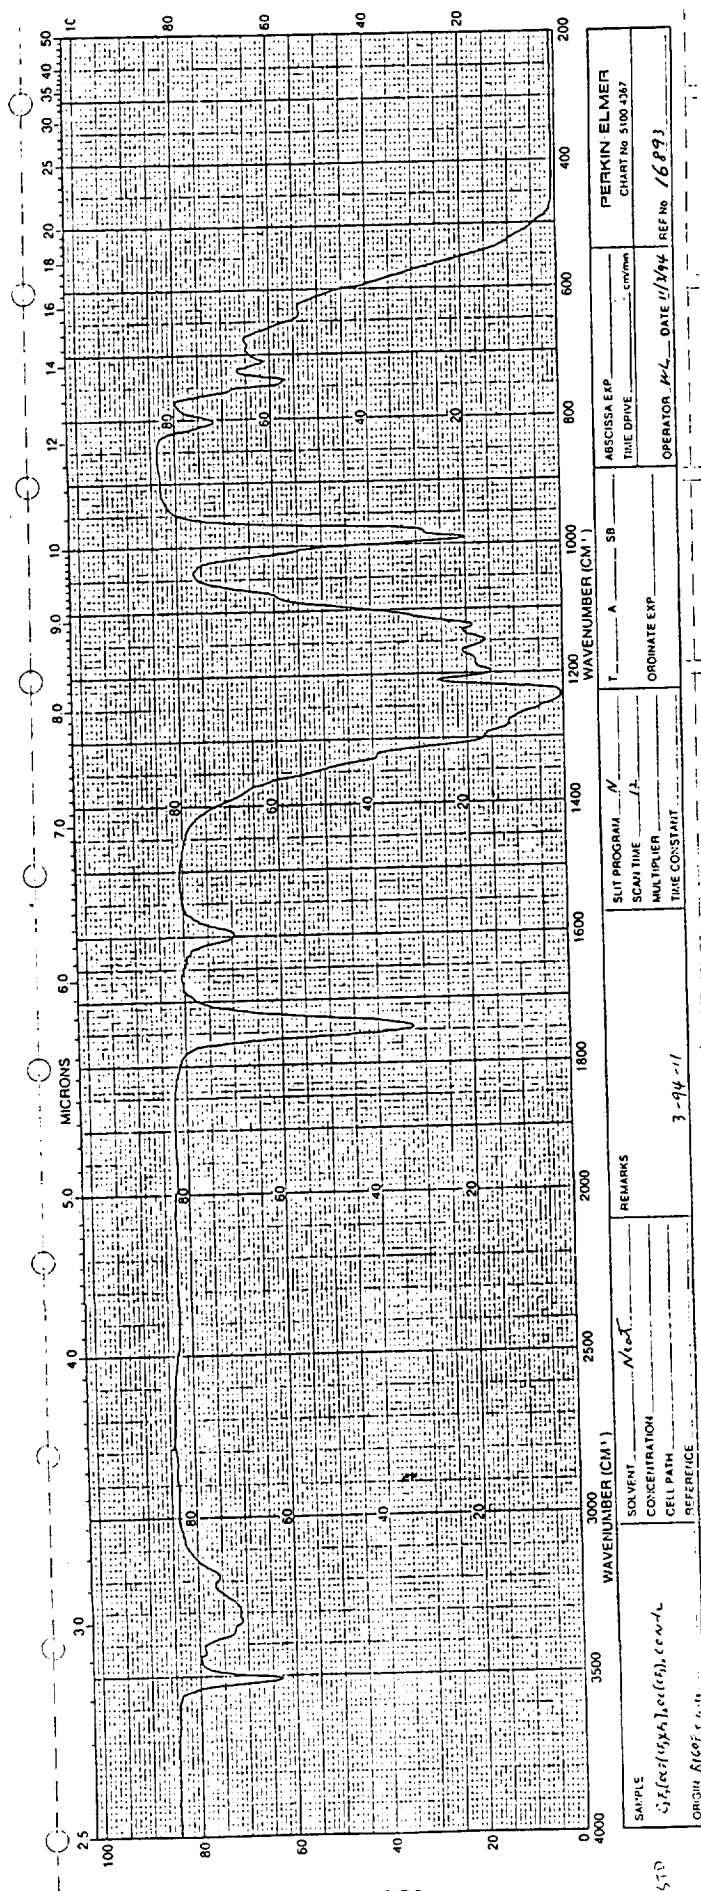 MICRONS
2.5 3.0 4.0 5.0 6.0 7.0 8.0 9.0 10 12 14 16 18 20 25 30 35 40 50
100
80 80 80 80 80 80
60 60 60 60 60
40 40 40 40 40
20 20 20 20 20
0
4000 3500 3000 2500 2000 1800 1600 1400 1200 1000 800 600 400 200
WAVENUMBER (CM⁻¹) WAVENUMBER (CM⁻¹)
SAMPLE
ORIGIN
STD
SOLVENT Neat
CONCENTRATION
CELL PATH
REFERENCE
REMARKS
3-94-11
SLIT PROGRAM N
SCAN TIME 12
MULTIPLIER
TIME CONSTANT
T A SB
ORDINATE EXP
ABSCISSA EXP
TIME DRIVE cm/min
OPERATOR DATE 11/3/94
PERKIN-ELMER
CHART No 5100 4367
REF No 16893